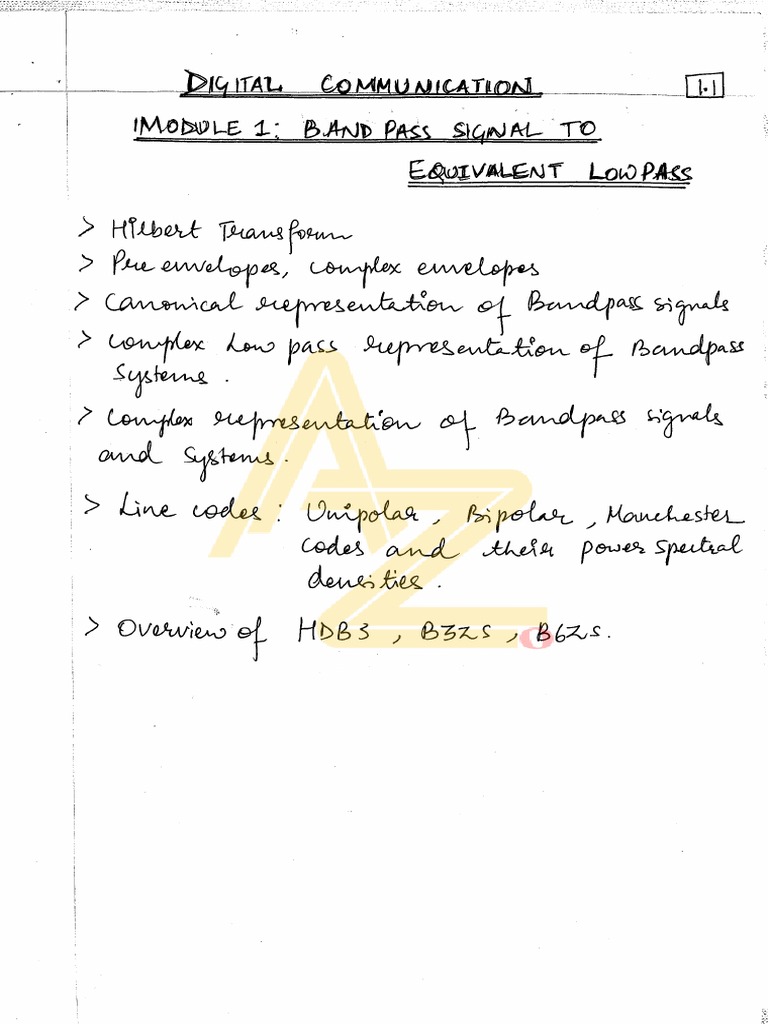 DIGITAL COMMUNICATION
1.1
MODULE 1: BAND PASS SIGNAL TO
EQUIVALENT LOWPASS
> Hilbert Transform
> Pre envelopes, complex envelopes
> Canonical representation of Bandpass signals
> Complex Low pass representation of Bandpass
Systems.
> Complex representation of Bandpass signals
and systems.
> Line codes: Unipolar, Bipolar, Manchester
codes and their power spectral
densities.
> Overview of HDB3, B3ZS, B6ZS.
AZ